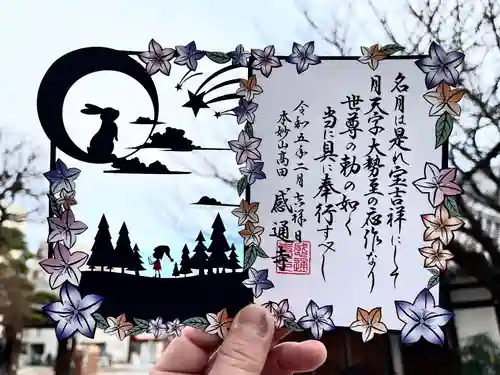 名月は是れ宝吉祥にして
月天子大勢至の応作なり
世尊の勅の如く
当に具に奉行すべし
令和五年二月吉祥日
本妙山高田
感通寺